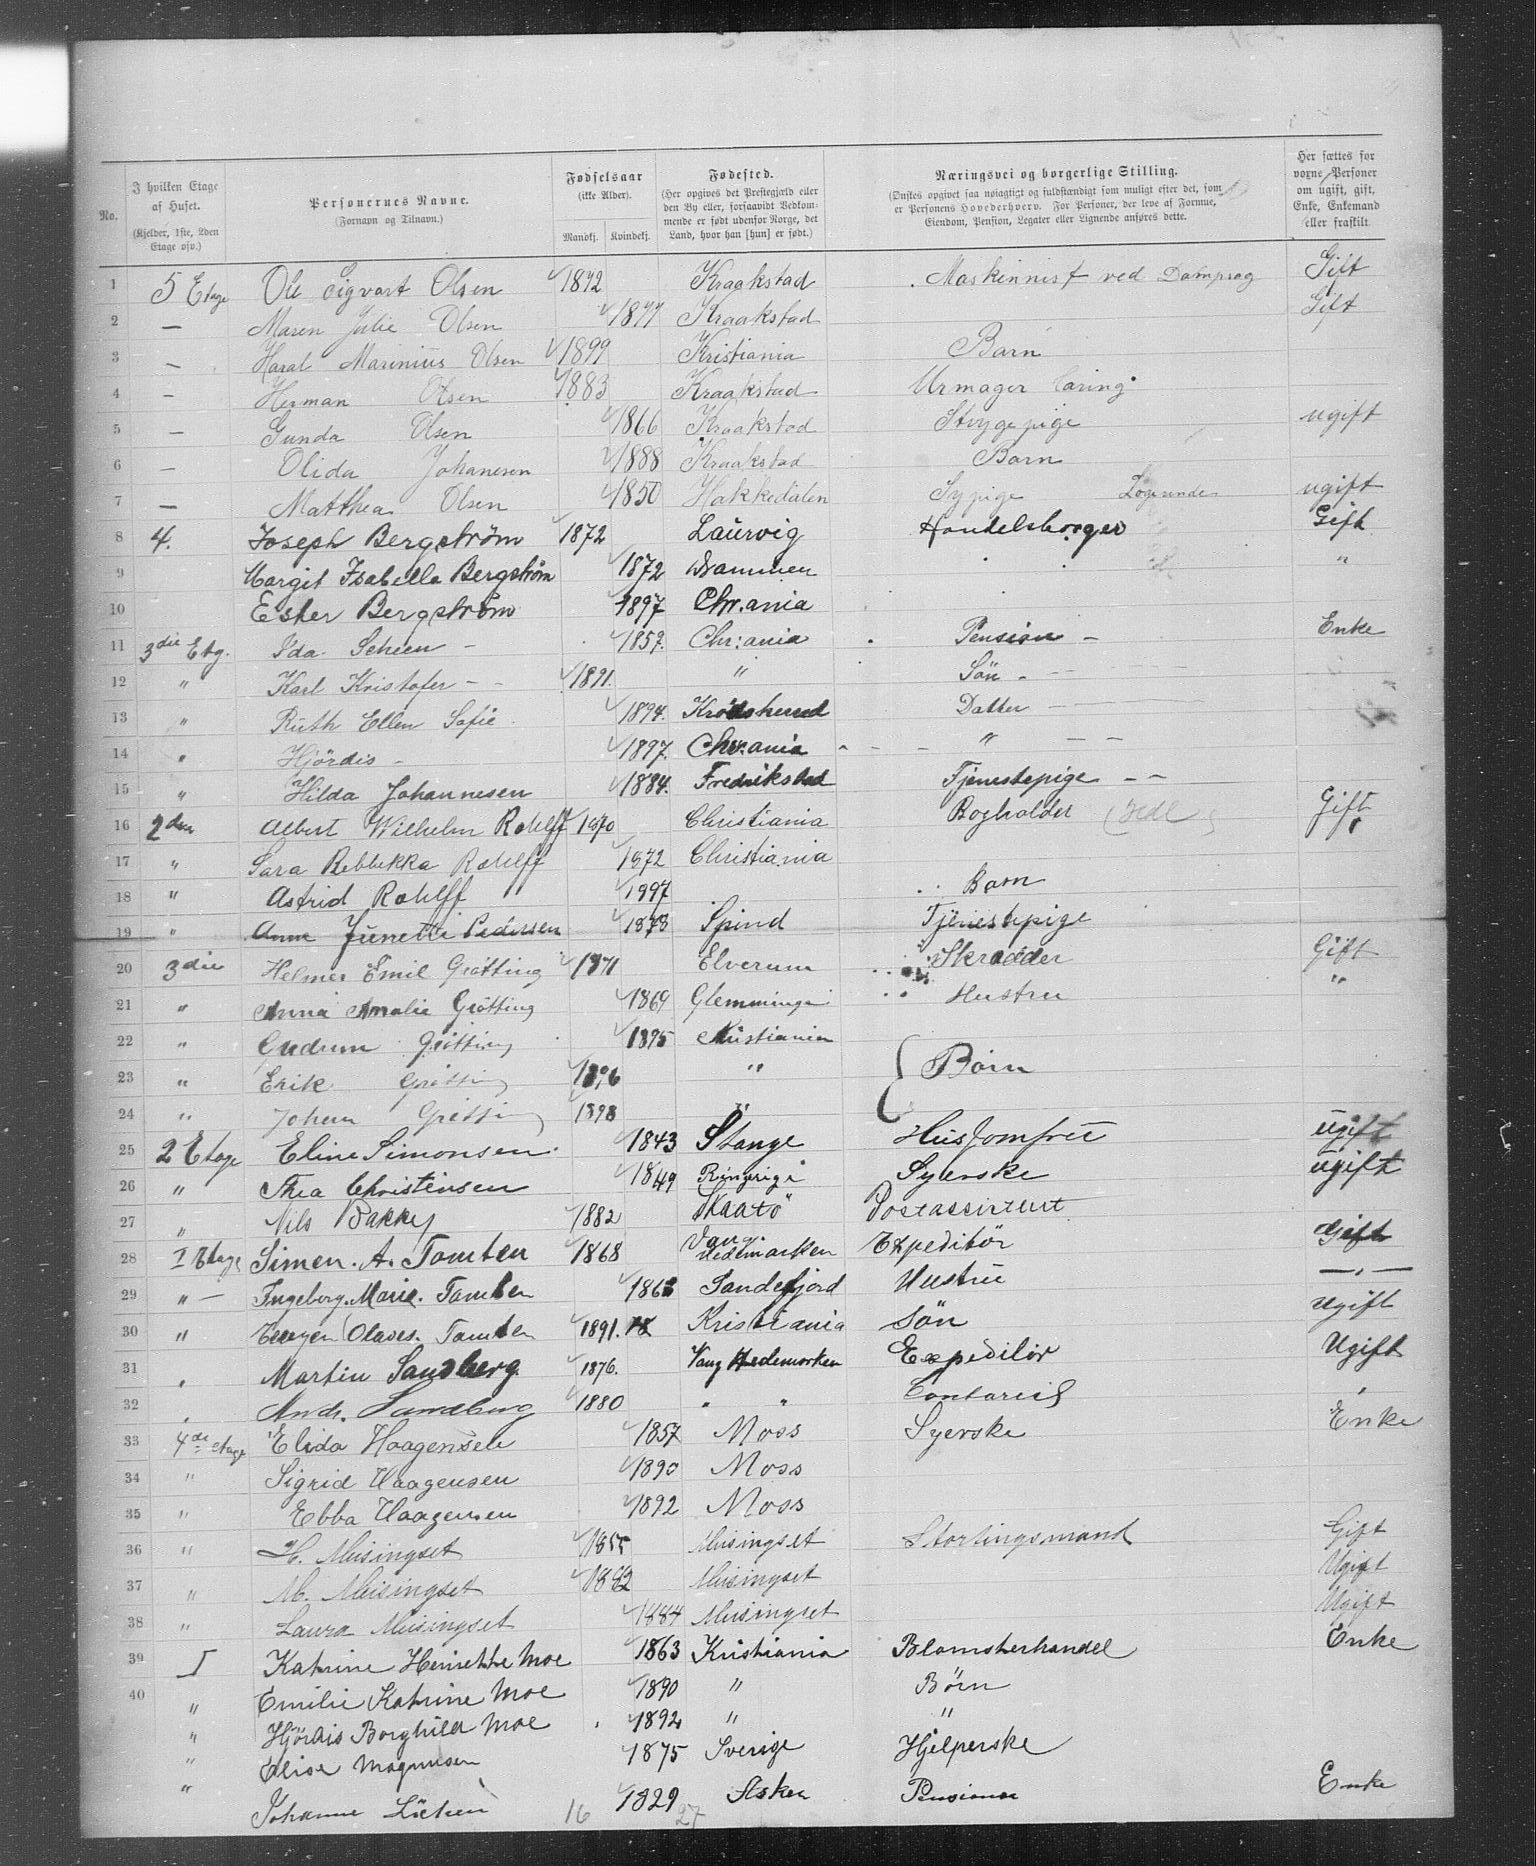 No. I hvilken Etage af Huset. (Kjelder, 1ste, 2den Etage osv.) Personernes Navne. (Fornavn og Tilnavn.) Fødselsaar (ikke Alder). Mandkj. Kvindekj. Fødested. (Her opgives det Prestegjæld eller den By eller, forsaavidt Vedkommende er født udenfor Norge, det Land, hvor han [hun] er født.) Næringsvei og borgerlige Stilling. (Ønskes opgivet saa nøiagtigt og fuldstændigt som muligt efter det, som er Personens Hovederhverv. For Personer, der leve af Formue, Eiendom, Pension, Legater eller Lignende anføres dette. Her sættes for voxne Personer om ugift, gift, Enke, Enkemand eller fraskilt.
1 5 Etage Ole Sigvart Olsen 1872 Kraakstad Maskinnist ved Dampsag Gift
2 — Maren Julie Olsen 1877 Kraakstad Gift
3 — Haral Marinius Olsen 1899 Kristiania Barn
4 — Herman Olsen 1883 Kraakstad Urmager læring
5 — Gunda Olsen 1866 Kraakstad Strygepige ugift
6 — Olida Johanesen 1888 Kraakstad Barn
7 — Matthea Olsen 1850 Hakkedalen Sypige Logerende ugift
8 4. Joseph Bergström 1872 Laurvig Handelsborger Gift
9 Margit Isabella Bergström 1872 Drammen "
10 Ester Bergström 1897 Chr.ania
11 3die Etg. Ida Scheen — 1857. Chr:ania Pension — Enke
12 " Karl Kristofer — — 1891. " Søn — —
13 " Ruth Ellen Sofie 1894. Krødsherred Datter — — —
14 " Hjördis — 1897. Chr.ania " — —
15 " Hilda Johannesen 1884. Fredrikstad Tjenestepige — —
16 2den Albert Wilhelm Rohlff 1870 Christiania Bogholder Gift
17 " Sara Rebbekka Rohlff 1872 Christiania "
18 " Astrid Rohlff 1897 Barn
19 " Anne Junette Pedersen 1878 Spind Tjenestepige
20 3die Helmer Emil Grötting 1871 Elverum Skrædder Gift
21 " Anna Amalie Grötting 1869 Glemminge Hustru "
22 " Gudrun Grötting 1895 Christiania
23 " Erik Grötting 1896 " Börn
24 " Johan Grötting 1898 "
25 2 Etage Eline Simonsen 1843 Stange Husjomfru ugift
26 " Thea Christensen 1849 Ringerige Syerske ugift
27 " Nils Bakke 1882 Skaatø Postassistent
28 I Etage Simen. A. Tomten 1868 Vang Hedemarken Expeditör Gift
29 " — Ingeborg. Marie. Tomten 1863 Sandefjord Hustru — " —
30 " Olaves. Tomten 1891. Kristiania Sön ugift
31 " Martin Sandberg 1876. Vang Hedemarken Expeditör Ugift
32 " Andr. Sandberg 1880 " " Contorist "
33 4de etage Elida Haagensen 1857 Moss Syerske Enke
34 " Sigrid Haagensen 1890 Moss
35 " Ebba Haagensen 1892 Moss
36 " H. Meisingset 1855 Meisingset Stortingsmand Gift
37 " M. Meisingset 1882 Meisingset Ugift
38 " Laura Meisingset 1884 Meisingset Ugift
39 I Katrine Henriette Moe 1863 Kristiania Blomsterhandel Enke
40 " Emilie Katrine Moe 1890 " Börn
" Hjördis Borghild Moe 1892 " "
" Elise Magnusen 1875 Sverige Hjelperske
" Johanne 1829 Asker Pensioner Enke
16 27